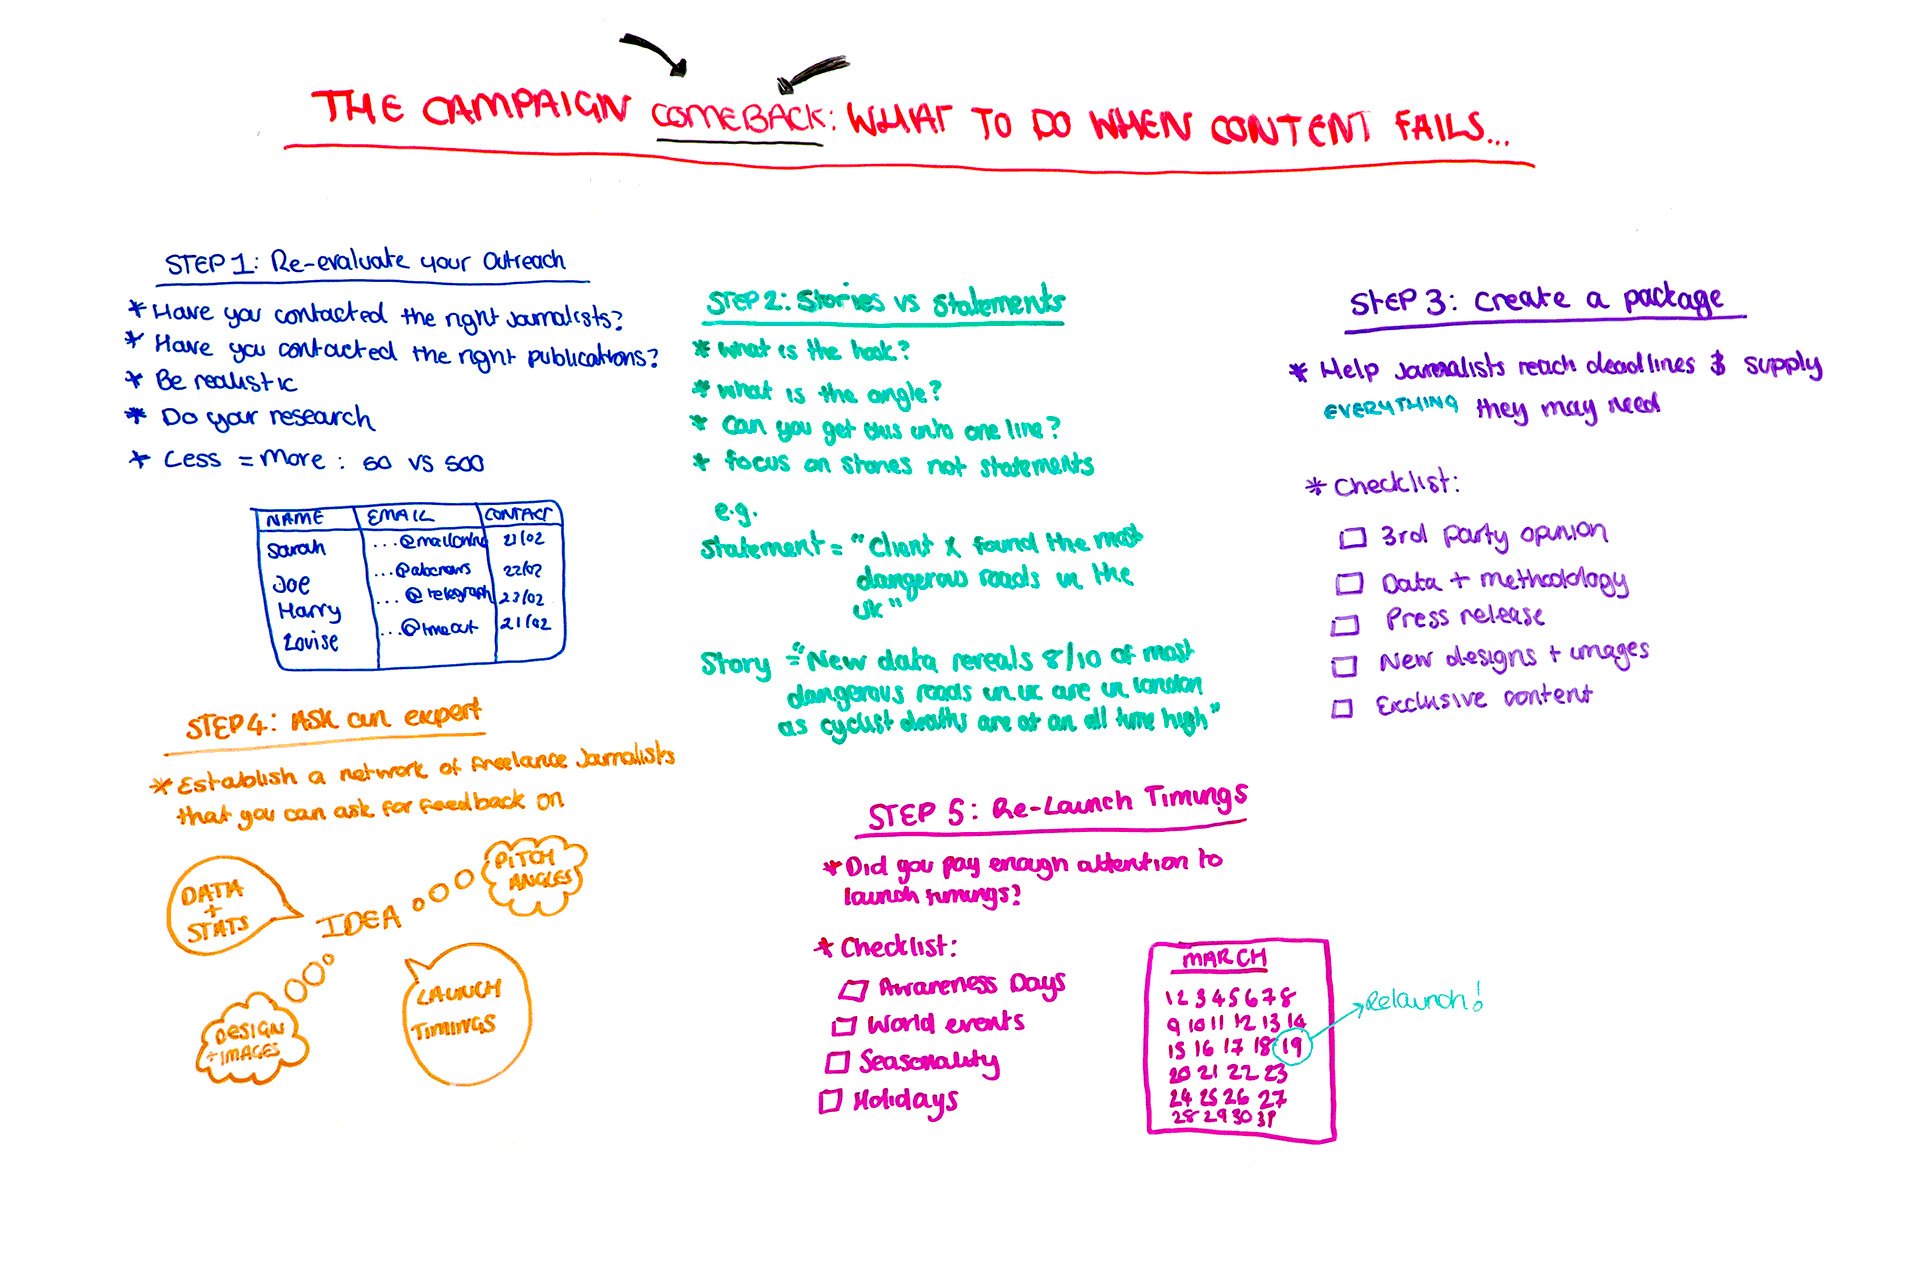 THE CAMPAIGN COMEBACK: WHAT TO DO WHEN CONTENT FAILS...
STEP 1: Re-evaluate your Outreach
* Have you contacted the right Journalists?
* Have you contacted the right publications?
* Be realistic
* Do your research
* Less = More : 50 vs 500
NAME EMAIL CONTACT
Sarah ...@mailonline 21/02
Joe ...@abcnews 22/02
Harry ...@telegraph 23/02
Louise ...@timeout 21/02
STEP 2: Stories vs Statements
* What is the hook?
* What is the angle?
* Can you get this into one line?
* Focus on stories not statements
e.g.
Statement = "Client X found the most
dangerous roads in the
UK"
Story = "New data reveals 8/10 of most
dangerous roads in UK are in London
as cyclist deaths are at an all time high"
STEP 3: Create a package
* Help Journalists reach deadlines & supply
EVERYTHING they may need
* Checklist:
3rd party opinion
Data + methodology
Press release
New designs + images
Exclusive content
STEP 4: Ask an expert
* Establish a network of freelance Journalists
that you can ask for feedback on
DATA
+
STATS
IDEA
PITCH
ANGLES
DESIGN
+ IMAGES
LAUNCH
TIMINGS
STEP 5: Re-Launch Timings
* Did you pay enough attention to
launch timings?
* Checklist:
Awareness Days
World events
Seasonality
Holidays
MARCH
1 2 3 4 5 6 7 8
9 10 11 12 13 14
15 16 17 18 19
20 21 22 23
24 25 26 27
28 29 30 31
Relaunch!